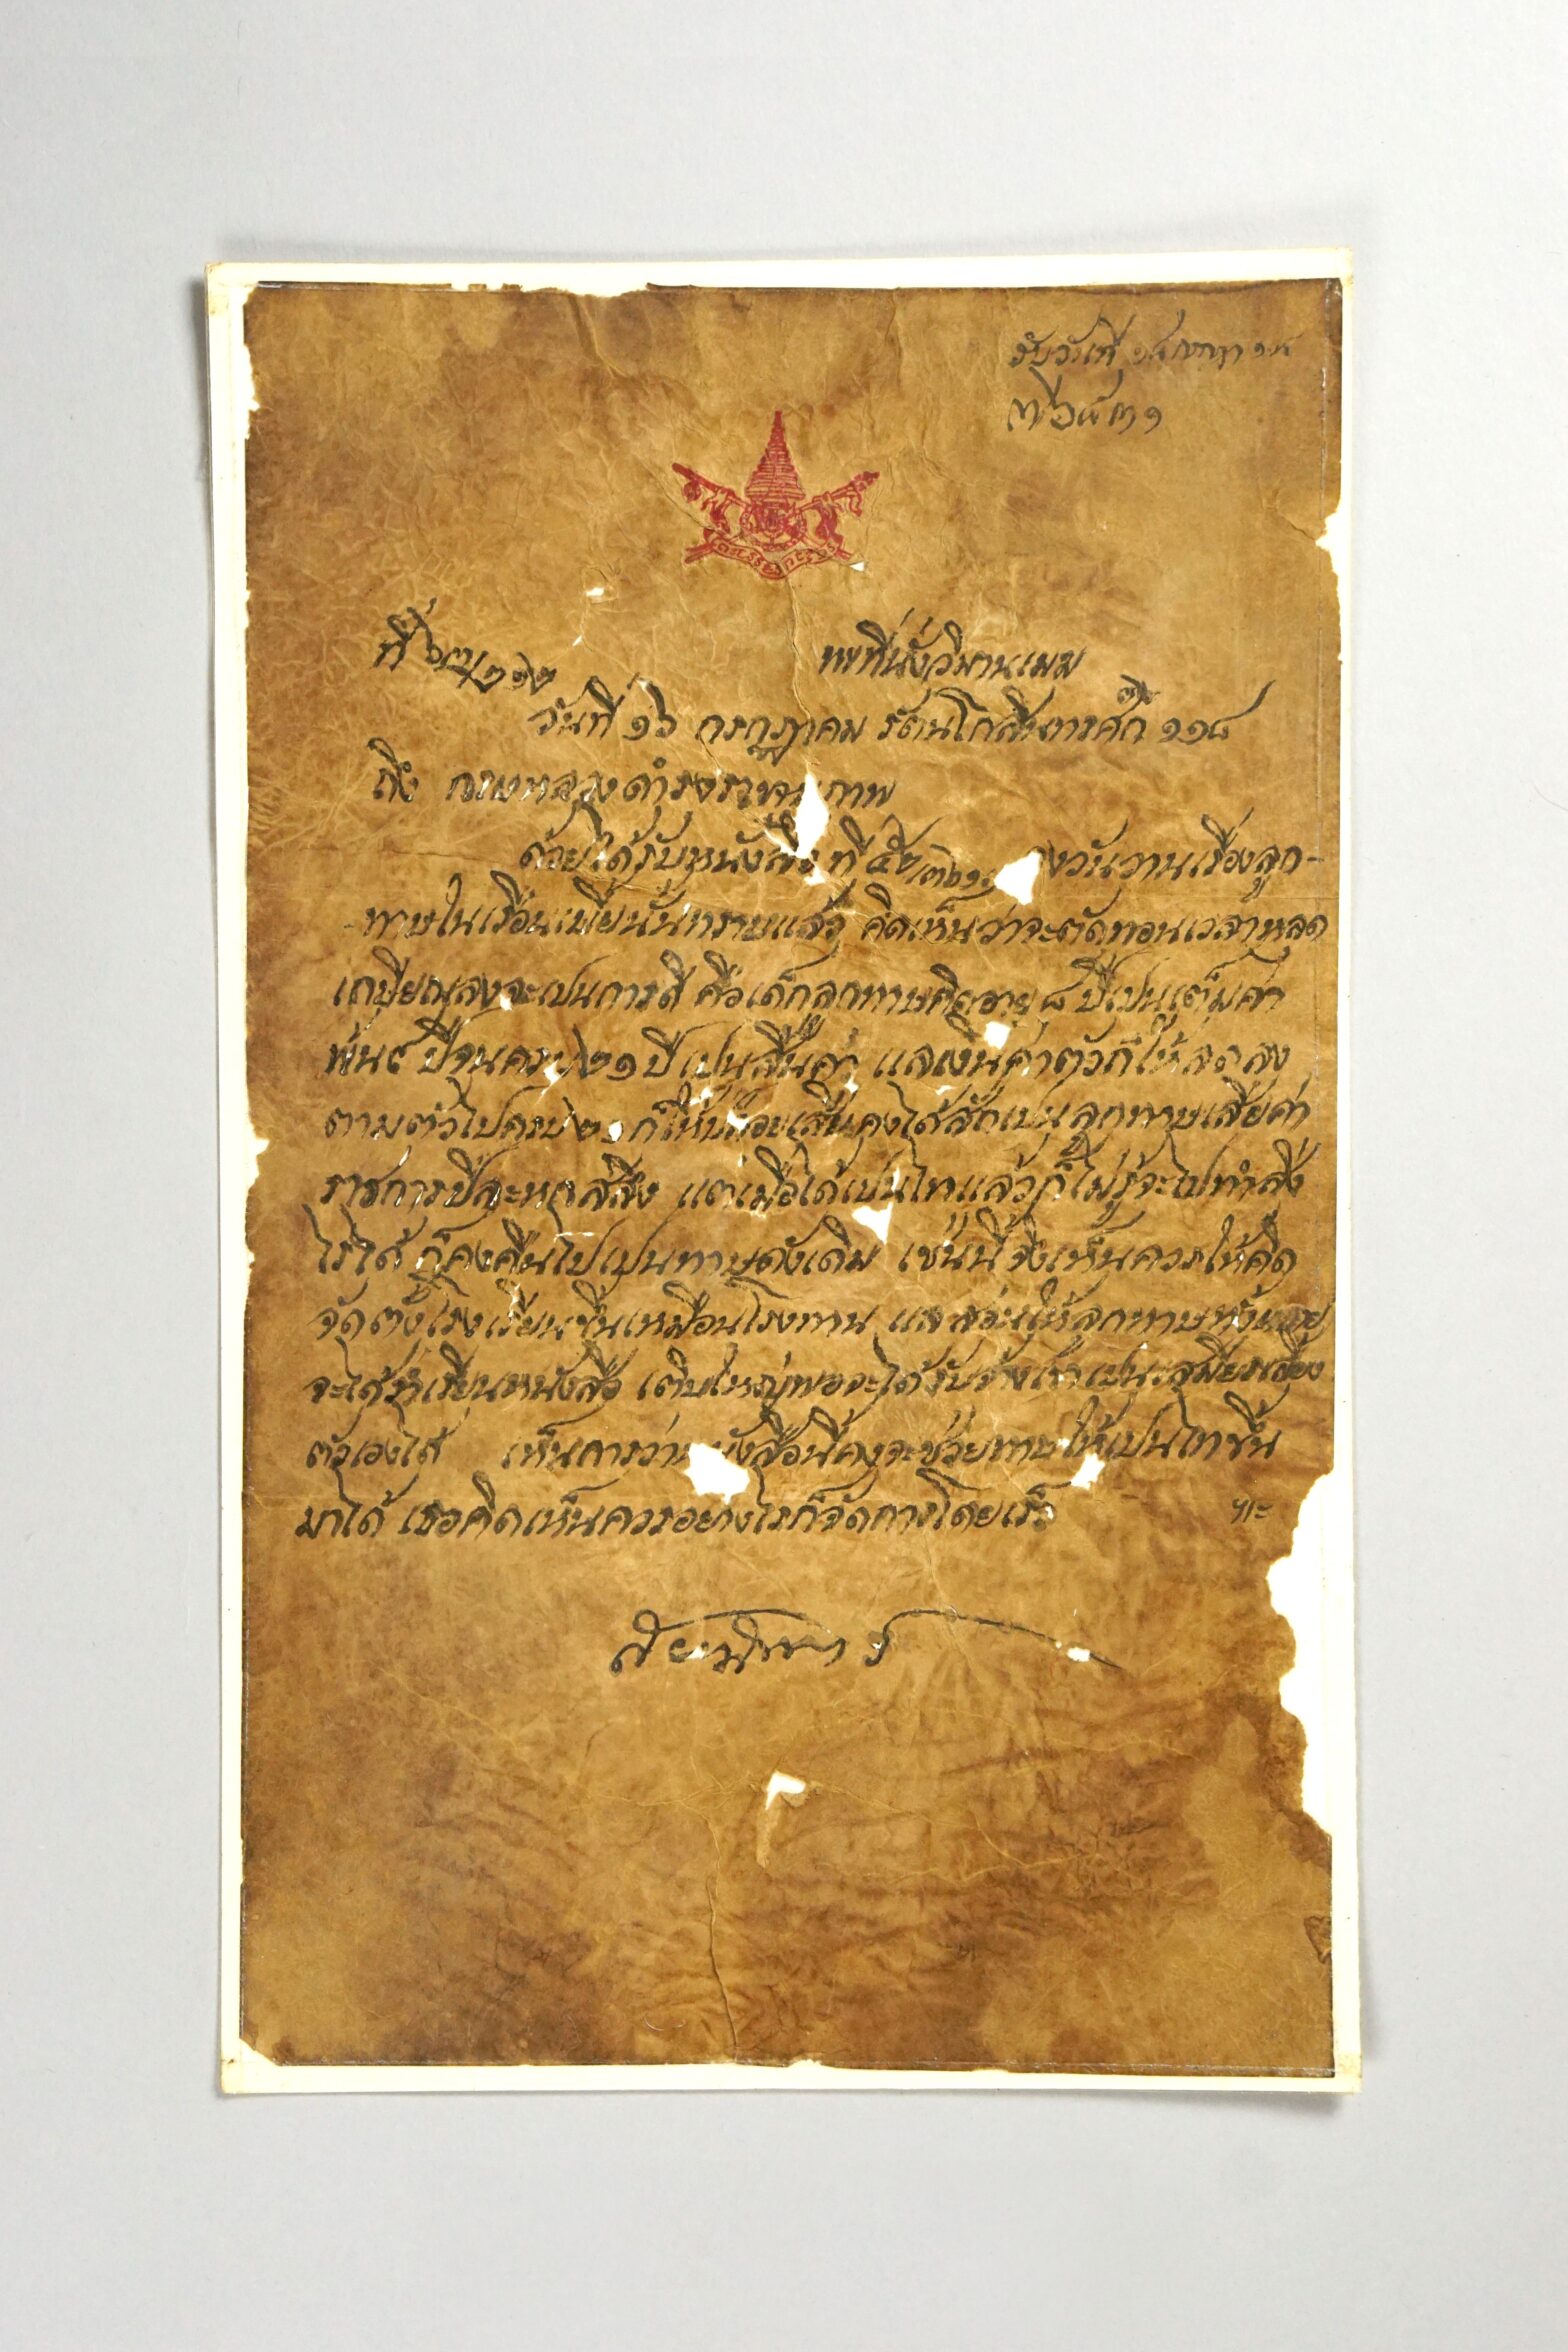 รับวันที่
ที่ ๖๓/๒๑๒
พที่นั่งวิมานเมฆ
วันที่ ๑๖ กรกฎาคม รัตนโกสินทรศก ๑๑๘
ถึง กรมหลวงดำรงราชานุภาพ
ด้วยได้รับหนังสือ ที่ วันวานเรื่องลูก-
ทาษในเรือนเบี้ยนั้นทราบแล้ว คิดเห็นว่าจะตัดทอนเวลาหลุด
เกษียณลงจะเปนการดี คือเด็กลูกทาษคิดอายุ ๘ ปีเปนเต็มค่า
พ้น ๘ ปีจนครบ ๒๑ ปี เปนสิ้นค่า แลเงินค่าตัวก็ให้ลดลง
ตามตัวไปครบ ๒๑ ก็ให้ คงได้สักเปนลูกทาษเสียค่า
ราชการปีละหกสลึง แต่เมื่อได้เปนไทแล้วก็ไม่รู้จะไปทำสิ่ง
ไรได้ ก็คงคืนไปเปนทาษดังเดิม เช่นนี้ จึงเห็นควรให้คิด
จัดตั้งโรงเรียนขึ้นเหมือนโรงทาน แลสอนให้ลูกทาษทั้งหลาย
จะได้ร่ำเรียนหนังสือ เติบใหญ่พอจะได้รับจ้างเขาเปนเสมียรเลี้ยง
ตัวเองได้ เห็นการว่า หนังสือนี้คงจะช่วยทาษให้เปนไทขึ้น
มาได้ เธอคิดเห็นควรอย่างไรก็จัดการโดยเร็ว
สยามินทร์